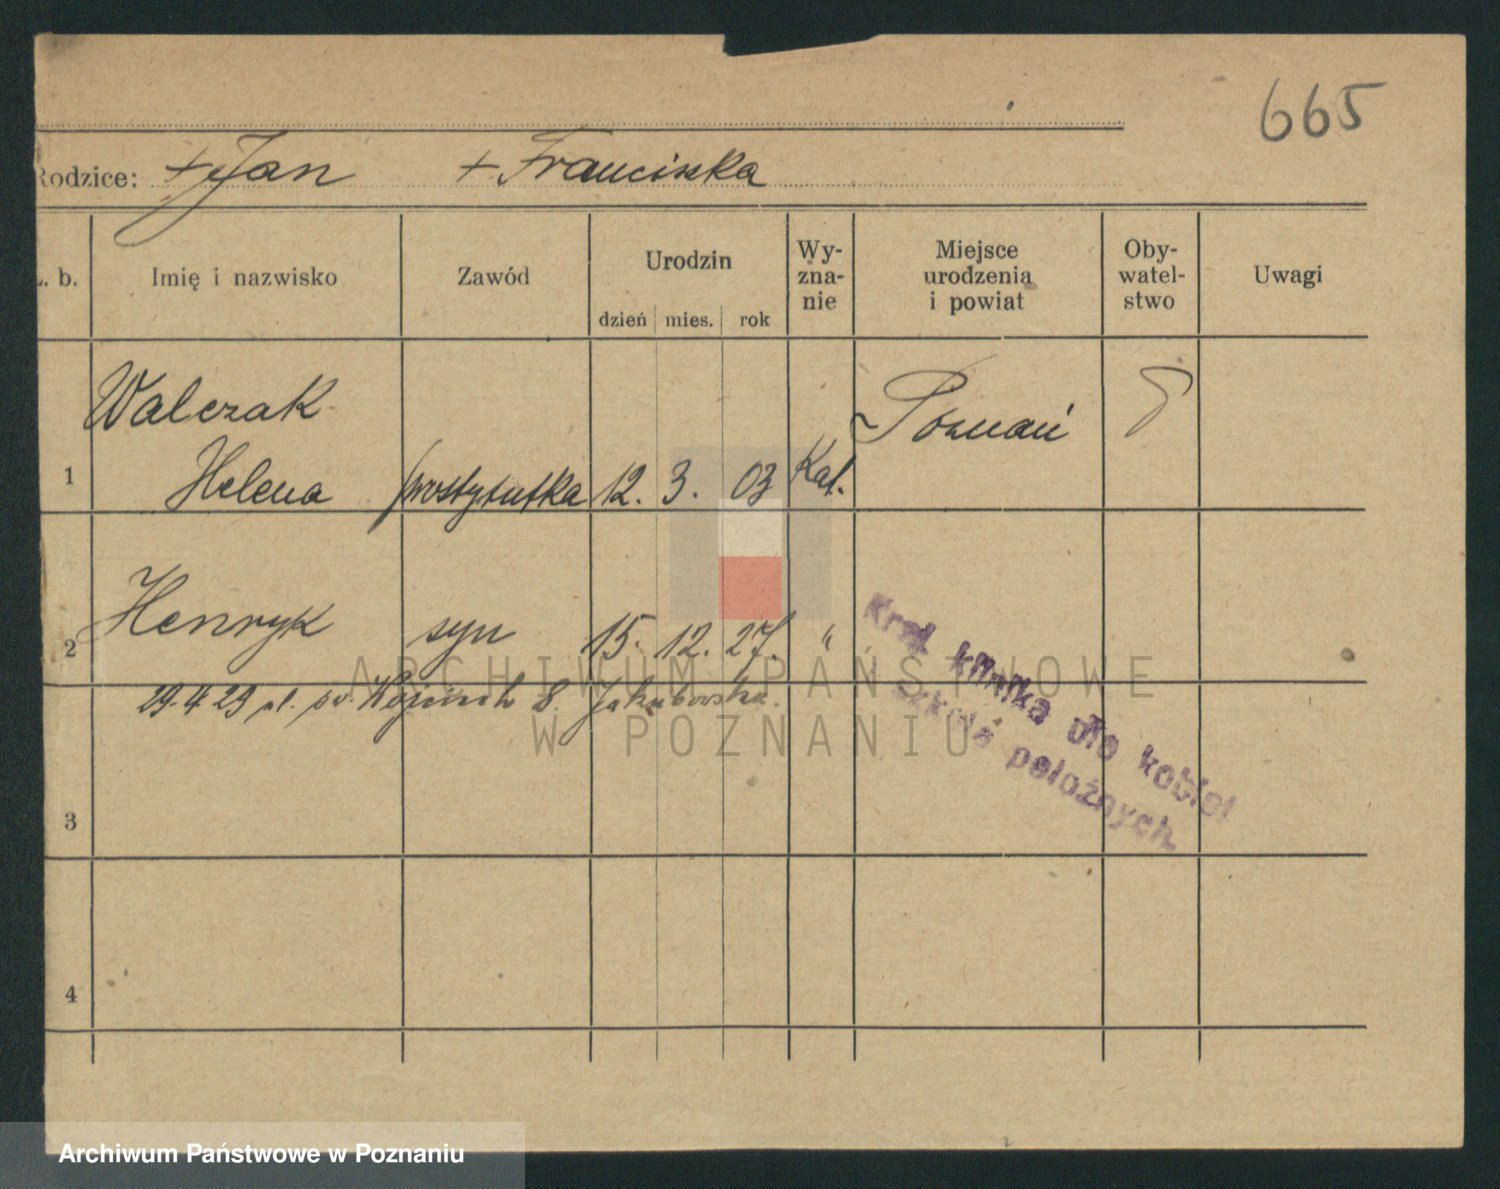 665
Rodzice: + Jan + Franciszka
L. b. Imię i nazwisko Zawód Urodzin dzień mies. rok Wy-zna-nie Miejsce urodzenia i powiat Oby-watel-stwo Uwagi
Walczak Poznań
1 Helena prostytutka 12. 3. 03 Kat.
2 Henryk syn 15. 12. 27. "
29.4.29 pl. św. Wojciech 8. Jakubowska.
Kraj. klinika dla kobiet
szkoła położnych.
3
4
ARCHIWUM PAŃSTWOWE
W POZNANIU
Archiwum Państwowe w Poznaniu